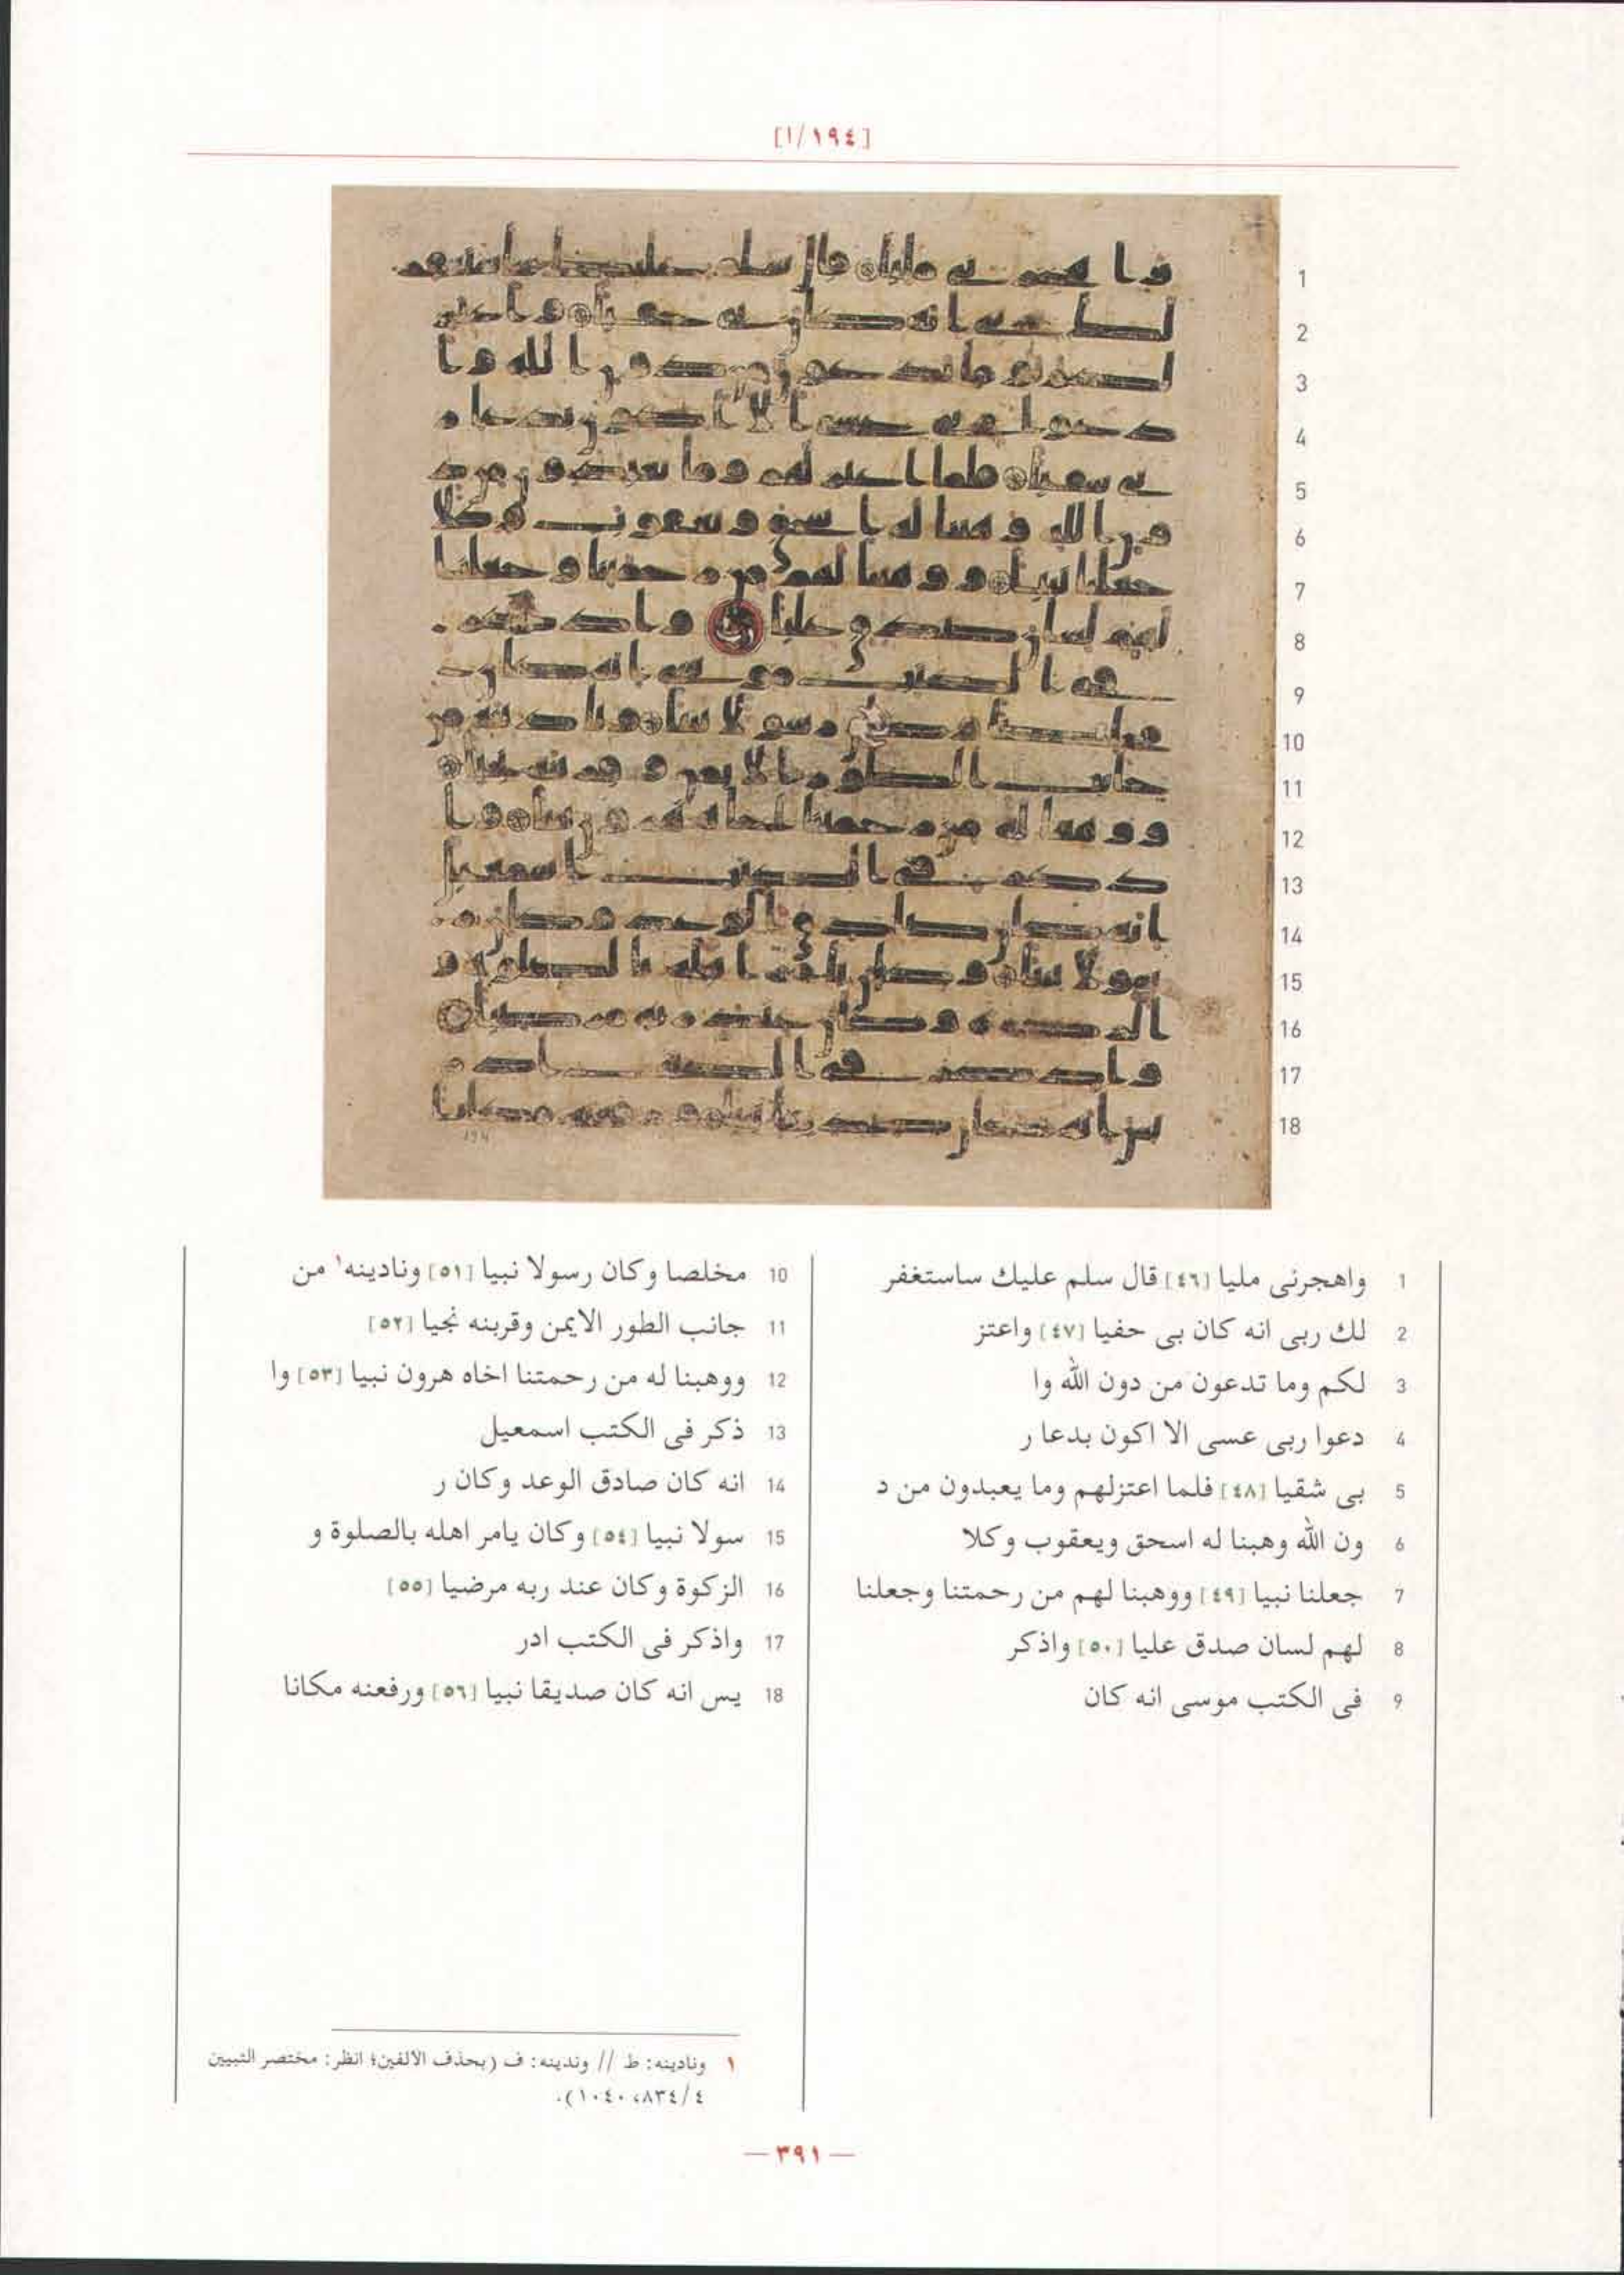 [١٩٤/ا]
1 واهجرنى مليا [٤٦] قال سلم عليك ساستغفر
2 لك ربى انه كان بى حفيا [٤٧] واعتز
3 لكم وما تدعون من دون الله وا
4 دعوا ربى عسى الا اكون بدعا ر
5 بى شقيا [٤٨] فلما اعتزلهم وما يعبدون من د
6 ون الله وهبنا له اسحق ويعقوب وكلا
7 جعلنا نبيا [٤٩] ووهبنا لهم من رحمتنا وجعلنا
8 لهم لسان صدق عليا [٥٠] واذكر
9 فى الكتب موسى انه كان
10 مخلصا وكان رسولا نبيا [٥١] ونادينه١ من
11 جانب الطور الايمن وقربنه نجيا [٥٢]
12 ووهبنا له من رحمتنا اخاه هرون نبيا [٥٣] وا
13 ذكر فى الكتب اسمعيل
14 انه كان صادق الوعد وكان ر
15 سولا نبيا [٥٤] وكان يامر اهله بالصلوة و
16 الزكوة وكان عند ربه مرضيا [٥٥]
17 واذكر فى الكتب ادر
18 يس انه كان صديقا نبيا [٥٦] ورفعنه مكانا
١ ونادينه: ط // وندينه: ف (بحذف الالفين؛ انظر: مختصر التبيين
٤/٨٣٤، ١٠٤٠).
— ٣٩١ —